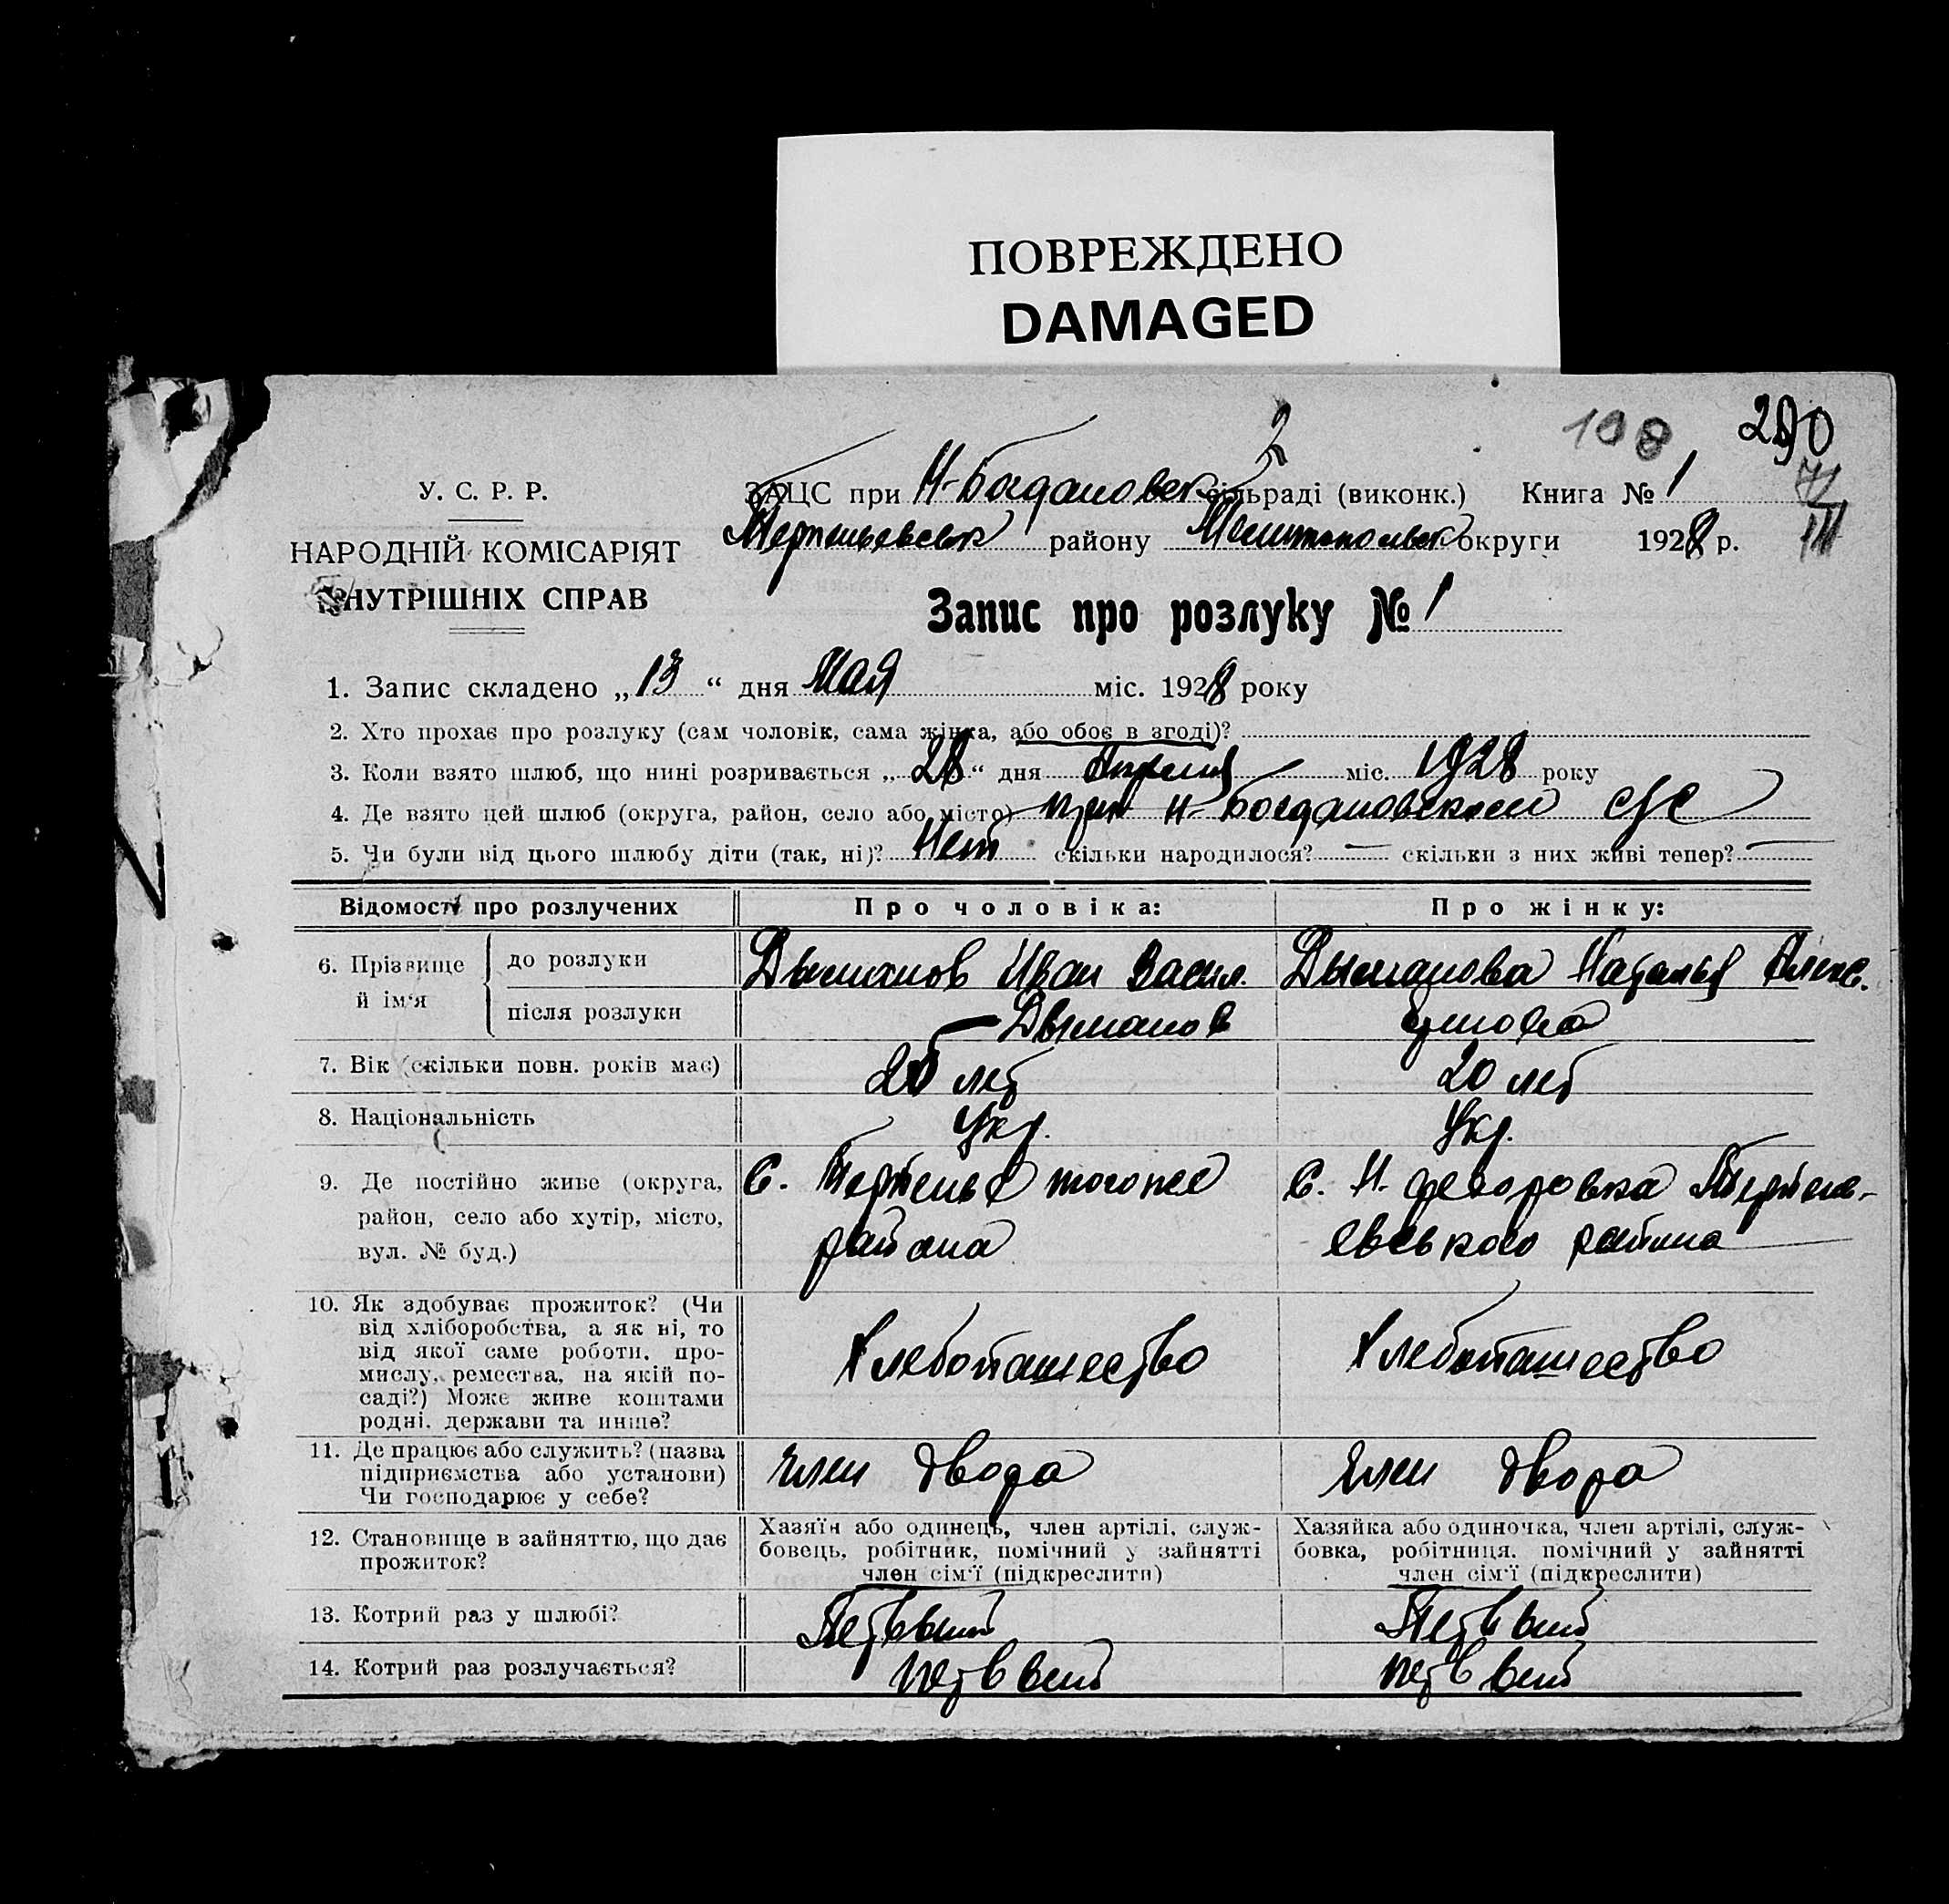 ПОВРЕЖДЕНО
DAMAGED
2
198
290
71
У. С. Р. Р.
НАРОДНІЙ КОМІСАРІЯТ
ВНУТРІШНІХ СПРАВ
ЗАЦС при Н-Богдановск сільраді (виконк.) Книга № 1
району округи 1928 р.
Запис про розлуку № 1
1. Запис складено „13“ дня Мая міс. 1928 року
2. Хто прохає про розлуку (сам чоловік, сама жінка, або обоє в згоді)?
3. Коли взято шлюб, що нині розривається „28“ дня Апреля міс. 1928 року
4. Де взято цей шлюб (округа, район, село або місто) при Н-Богдановском с/с
5. Чи були від цього шлюбу діти (так, ні)? Нет скільки народилося? — скільки з них живі тепер? —
Відомості про розлучених
Про чоловіка:
Про жінку:
6. Прізвище й ім'я
до розлуки
Дыманов Иван Васил.
Дыманова Наталья Алекс.
після розлуки
Дыманов
7. Вік (скільки повн. років має)
лет
20 лет
8. Національність
Укр.
Укр.
9. Де постійно живе (округа,
район, село або хутір, місто,
вул. № буд.)
С. Терпенье того же
района
С. Н. Федоровка Терпень-
евського района
10. Як здобуває прожиток? (Чи
від хліборобства, а як ні, то
від якої саме роботи, про-
мислу, ремества, на якій по-
саді?) Може живе коштами
родні, держави та инше?
Хлебопашество
Хлебопашество
11. Де працює або служить? (назва
підприємства або установи)
Чи господарює у себе?
член двора
член двора
12. Становище в зайняттю, що дає
прожиток?
Хазяїн або одинець, член артілі, служ-
бовець, робітник, помічний у зайнятті
член сім'ї (підкреслити)
Хазяйка або одиночка, член артілі, служ-
бовка, робітниця, помічний у зайнятті
член сім'ї (підкреслити)
13. Котрий раз у шлюбі?
Первый
Первый
14. Котрий раз розлучається?
первый
первый